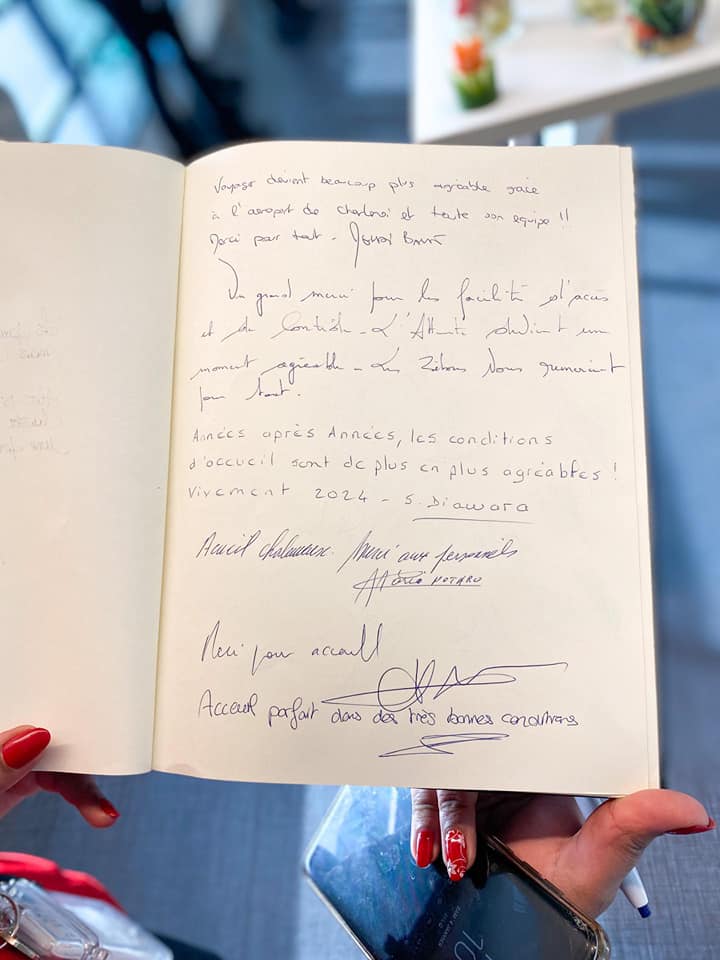 Voyager devient beaucoup plus agréable grace
à l'aeroport de charleroi et toute son equipe !!
Merci pour tout -
Un grand merci pour les facilité d'accès
et de Contrôle - L'Attente devient un
moment agréable - Les Vous
pour tout.
Années après Années, les conditions
d'accueil sont de plus en plus agréables !
Vivement 2024 - S. Diawara
Acueil chaleureuse. Merci aux personnels
NOTARO
Merci pour accueill
Acceuil parfait dans des très bonnes conditions